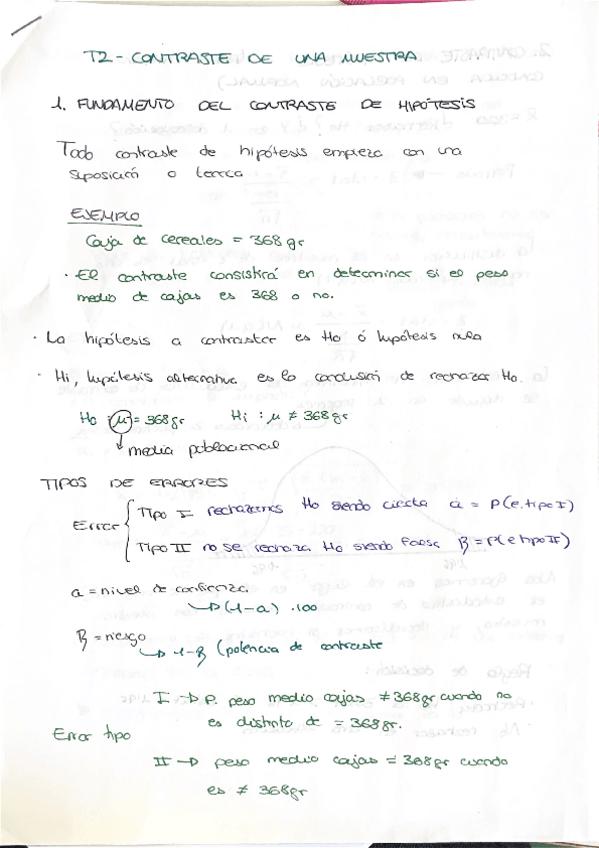 T2 - CONTRASTE DE UNA MUESTRA
1. FUNDAMENTO DEL CONTRASTE DE HIPÓTESIS
Todo contraste de hipótesis empieza con una
suposición o teoría
EJEMPLO
Caja de cereales = 368 gr
· El contraste consistirá en determinar si el peso
medio de cajas es 368 o no.
· La hipótesis a contrastar es Ho ó hipótesis nula
· Hi, hipótesis alternativa es la conclusión de rechazar Ho.
Ho : μ = 368gr Hi : μ ≠ 368gr
media poblacional
TIPOS DE ERRORES
Error { Tipo I rechazamos Ho siendo cierta α = P(e.tipo I)
Tipo II no se rechaza Ho siendo falsa β = P(e tipo II)
α = nivel de confianza
→ (1-α) · 100
β = riesgo
→ 1-β (potencia de contraste
I → P. peso medio cajas ≠ 368gr cuando no
es distinto de = 368gr.
Error tipo
II → peso medio cajas = 368gr cuando
es ≠ 368gr